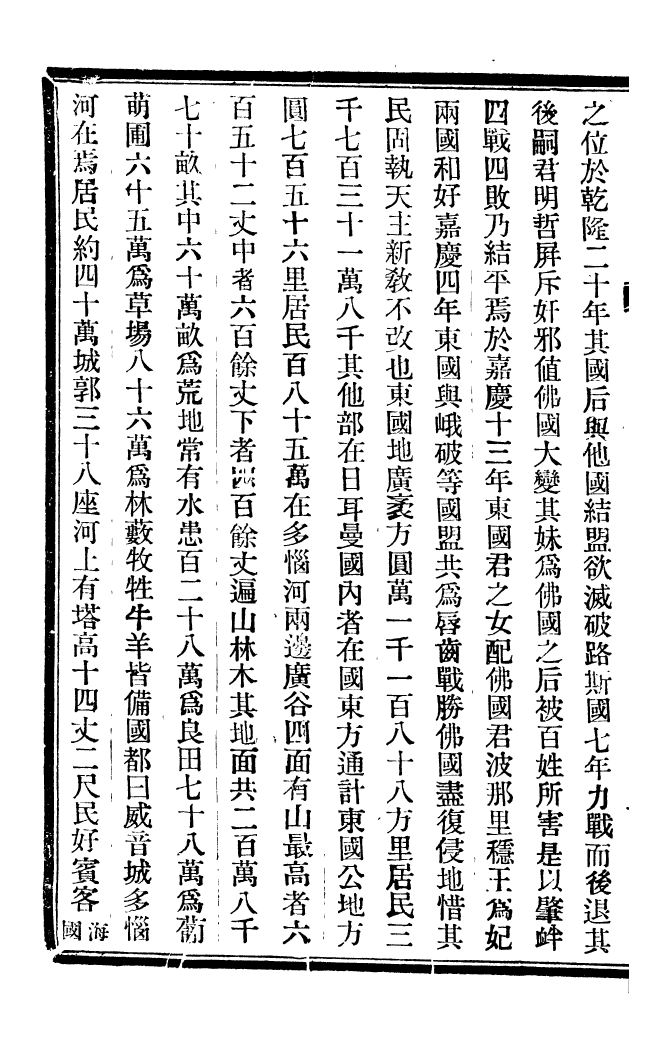 之位於乾隆二十年其國后與他國結盟欲滅破路斯國七年力戰而後退其
後嗣君明哲屏斥奸邪値佛國大變其妹爲佛國之后被百姓所害是以肇衅
四戰四敗乃結平焉於嘉慶十三年東國君之女配佛國君波那里穩王爲妃
兩國和好嘉慶四年東國與峨破等國盟共爲唇齒戰勝佛國盡復侵地惜其
民固執天主新敎不改也東國地廣袤方圓萬一千一百八十八方里居民三
千七百三十一萬八千其他部在日耳曼國內者在國東方通計東國公地方
圓七百五十六里居民百八十五萬在多惱河兩邊廣谷四面有山最高者六
百五十二丈中者六百餘丈下者四百餘丈遍山林木其地面共二百萬八千
七十畝其中六十萬畝爲荒地常有水患百二十八萬爲良田七十八萬爲葡
萌圃六十五萬爲草場八十六萬爲林藪牧牲牛羊皆備國都曰威音城多惱
河在焉居民約四十萬城郭三十八座河上有塔高十四丈二尺民好賓客
海國